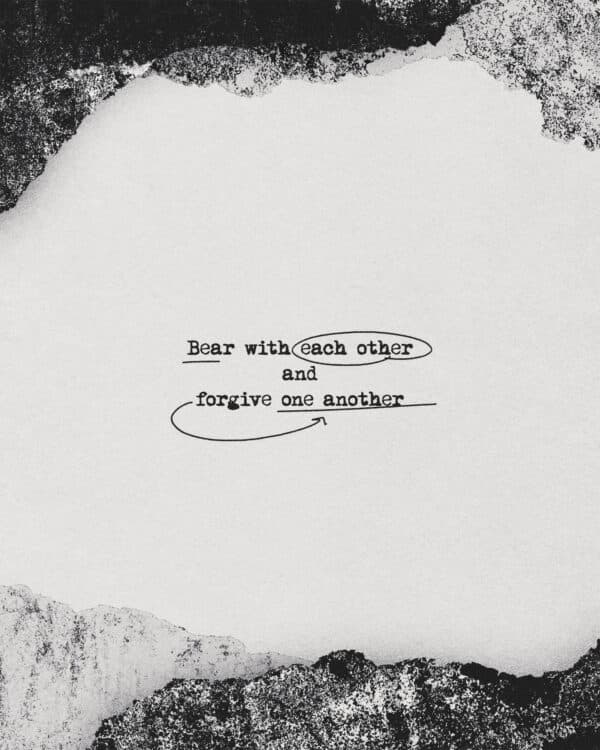 Bear with each other
and
forgive one another